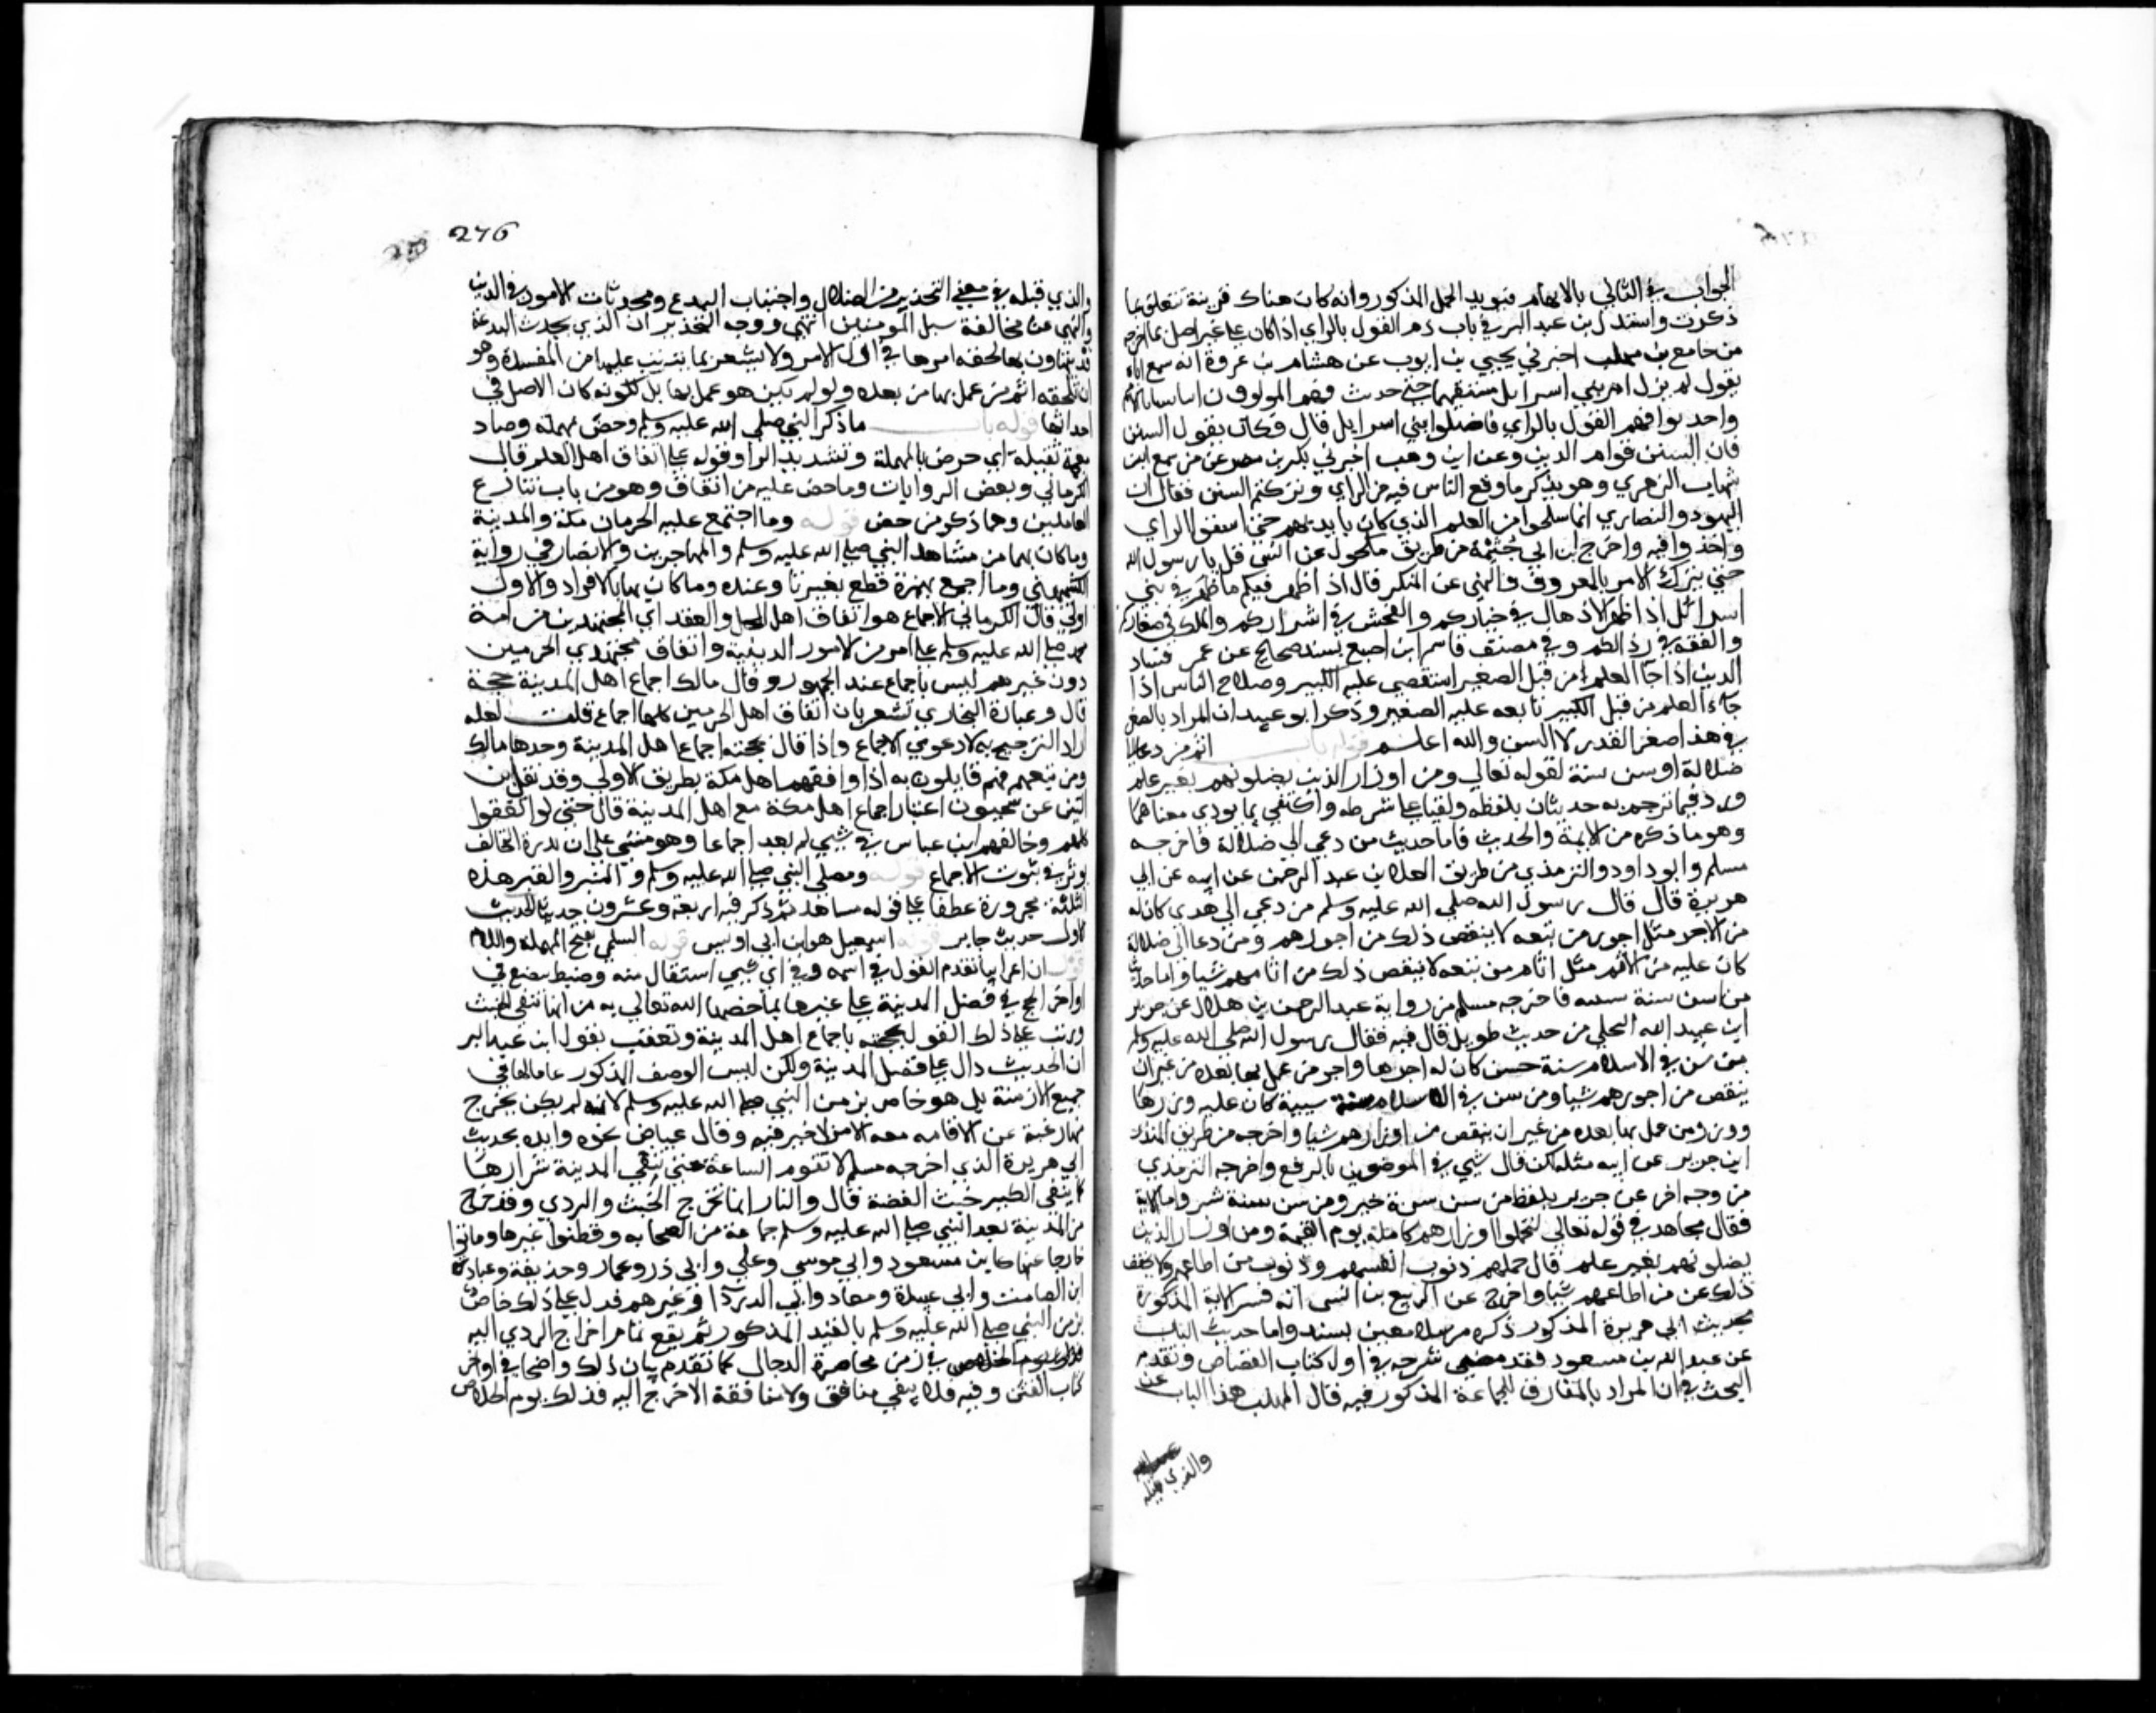 الجواب في الثاني بالابهام فيويد الحمل المذكور وانه كان هناك قرينة تتعلق بما
ذكرت واستدل بن عبد البر في باب ذم القول بالراي اذا كان على غير اصل بما اخرجه
من جامع بن اخبرني يحيي بن ايوب عن هشام بن عروة انه سمع اباه
يقول لم يزل امر بني اسرايل مستقيما حتي حدث فيهم المولدون
واحدثوا فيهم القول بالراي فاضلوا بني اسرايل قال وكان يقول السنن
فان السنن قوام الدين وعن ابن وهب اخبرني بكر بن مضر عن من سمع ابن
شهاب الزهري وهو يذكر ما وقع الناس فيه من الراي وتركهم السنن فقال ان
اليهود والنصاري انما سلخوا من العلم الذي كان بايديهم حتي الراي
واخذوا فيه واخرج ابن ابي خيثمة من طريق مكحول عن انس قيل يا رسول الله
حتي يترك الامر بالمعروف والنهي عن المنكر قال اذا اظهر فيكم ما ظهر في بني
اسرائيل اذا ظهر الادهان في خياركم والفحش في اشراركم والملك في صغاركم
والفقه في رذالكم وفي مصنف قاسم ابن اصبغ بسند صحيح عن عمر فساد
الدين اذا جا العلم من قبل الصغير استعصي عليه الكبير وصلاح الناس اذا
جاء العلم من قبل الكبير تابعه عليه الصغير وذكر ابو عبيد ان المراد بالصغر
في هذا صغر القدر لا السن والله اعلم قوله باب اثم من دعا الي
ضلالة او سن سنة لقوله تعالي ومن اوزار الذين يضلونهم بغير علم
ورد فيما ترجم به حديثان بلفظه وليسا على شرطه واكتفي بما يودي معناهما
وهو ما ذكره من الاية والحديث فاما حديث من دعي الي ضلالة فاخرجه
مسلم وابو داود والترمذي من طريق العلا بن عبد الرحمن عن ابيه عن ابي
هريرة قال قال رسول الله صلي الله عليه وسلم من دعي الي هدي كان له
من الاجر مثل اجور من تبعه لا ينقص ذلك من اجورهم ومن دعا الي ضلالة
كان عليه من الاثم مثل اثام من تبعه لا ينقص ذلك من اثامهم شيا واما حديث
من سن سنة سيية فاخرجه مسلم من رواية عبد الرحمن بن هلال عن جرير
ابن عبد الله البجلي من حديث طويل قال فيه فقال رسول الله صلى الله عليه وسلم
من سن في الاسلام سنة حسنة كان له اجرها واجر من عمل بها بعده من غير ان
ينقص من اجورهم شيا ومن سن في الاسلام سنة سيية كان عليه وزرها
ووزر من عمل بها بعده من غير ان ينقص من اوزارهم شيا واخرجه من طريق المنذر
ابن جرير عن ابيه مثله لكن قال شي في الموضعين بالرفع واخرجه الترمذي
من وجه اخر عن جرير بلفظ من سن سنة خير ومن سن سنة شر واما الاية
فقال مجاهد في قوله تعالي ليحملوا اوزارهم كاملة يوم القيمة ومن اوزار الذين
يضلونهم بغير علم قال حملهم ذنوب انفسهم وذنوب من اطاعهم ولا يخفف
ذلك عن من اطاعهم شيا واخرج عن الربيع بن انس انه فسر الاية المذكورة
بحديث ابي هريرة المذكور ذكره مرسلا بغير سند واما حديث الباب
عن عبد الله بن مسعود فقد مضي شرحه في اول كتاب القصاص وتقدم
البحث في ان المراد بالمفارق للجماعة المذكور فيه قال المهلب هذا الباب
والذي قبله
276
والذي قبله في معني التحذير من الضلال واجتناب البدع ومحدثات الامور في الدين
والنهي عن مخالفة سبيل المومنين انتهي ووجه التحذير ان الذي يحدث البدعة
قد يتهاون بها لخفة امرها في اول الامر ولا يشعر بما يترتب عليها من المفسدة وهو
ان يلحقه اثم من عمل بها من بعده ولو لم يكن هو عمل بها بل لكونه كان الاصل في
احداثها قوله باب ما ذكر النبي صلي الله عليه وسلم وحض بمهملة وضاد
معجمة ثقيلة اي حرض بالمهملة وتشديد الرا وقوله على اتفاق اهل العلم قال
الكرماني وبعض الروايات وما حض عليه من اتفاق وهو من باب تنازع
العاملين وهما ذكر وحض قوله وما اجتمع عليه الحرمان مكة والمدينة
وما كان بهما من مشاهد النبي صلى الله عليه وسلم والمهاجرين والانصار في رواية
الكشميهني وما اجمع بهمزة قطع بغير تا وعنده وما كان بها بالافراد والاول
اولي قال الكرماني الاجماع هو اتفاق اهل الحل والعقد اي المجتهدين من امة
محمد صلى الله عليه وسلم على امر من الامور الدينية واتفاق مجتهدي الحرمين
دون غيرهم ليس باجماع عند الجمهور وقال مالك اجماع اهل المدينة حجة
قال وعبارة البخاري تشعر بان اتفاق اهل الحرمين كليهما اجماع قلت لعله
اراد الترجيح به لا دعوي الاجماع واذا قال بحجية اجماع اهل المدينة وحدها مالك
ومن تبعهم فهم قايلون به اذا وافقهم اهل مكة بطريق الاولي وقد نقل ابن
التين عن سحنون اعتبار اجماع اهل مكة مع اهل المدينة قال حتي لو اتفقوا
كلهم وخالفهم ابن عباس في شي لم يعد اجماعا وهو مبني على ان ندرة المخالف
توثر في ثبوت الاجماع قوله ومصلي النبي صلى الله عليه وسلم والمنبر والقبر هذه
الثلثة مجرورة عطفا على قوله مشاهد ثم ذكر فيه اربعة وعشرون حديثا الحديث
الاول حديث جابر قوله اسمعيل هو ابن ابي اويس قوله السلمي بفتح المهملة واللام
قوله ان اعرابيا تقدم القول في اسمه وفي اي شي استقال منه وضبط ينصع في
اواخر الحج في فضل المدينة على غيرها بما خصها الله تعالي به من انها تنفي الخبث
ورتب على ذلك القول بحجية اجماع اهل المدينة وتعقب بقول ابن عبد البر
ان الحديث دال على فضل المدينة ولكن ليس الوصف المذكور عاما لها في
جميع الازمنة بل هو خاص بزمن النبي صلى الله عليه وسلم لانه لم يكن يخرج
منها رغبة عن الاقامة معه الا من لا خير فيه وقال عياض نحوه وايده بحديث
ابي هريرة الذي اخرجه مسلم لا تقوم الساعة حتي تنفي المدينة شرارها
كما ينفي الكير خبث الفضة قال والنار انما تخرج الخبث والردي وقد خرج
من المدينة بعد النبي صلى الله عليه وسلم جماعة من الصحابة وقطنوا غيرها وماتوا
خارجا عنها كابن مسعود وابي موسي وعلي وابي ذر وعمار وحذيفة وعبادة
ابن الصامت وابي عبيدة ومعاذ وابي الدردا وغيرهم فدل على ذلك خاص
بزمن النبي صلى الله عليه وسلم بالقيد المذكور ثم يقع تمام اخراج الردي اليه
في زمن محاصرة الدجال كما تقدم بيان ذلك واضحا في اواخر
كتاب الفتن وفيه فلا يبقي منافق ولا منافقة الا خرج اليه فذلك يوم الخلاص